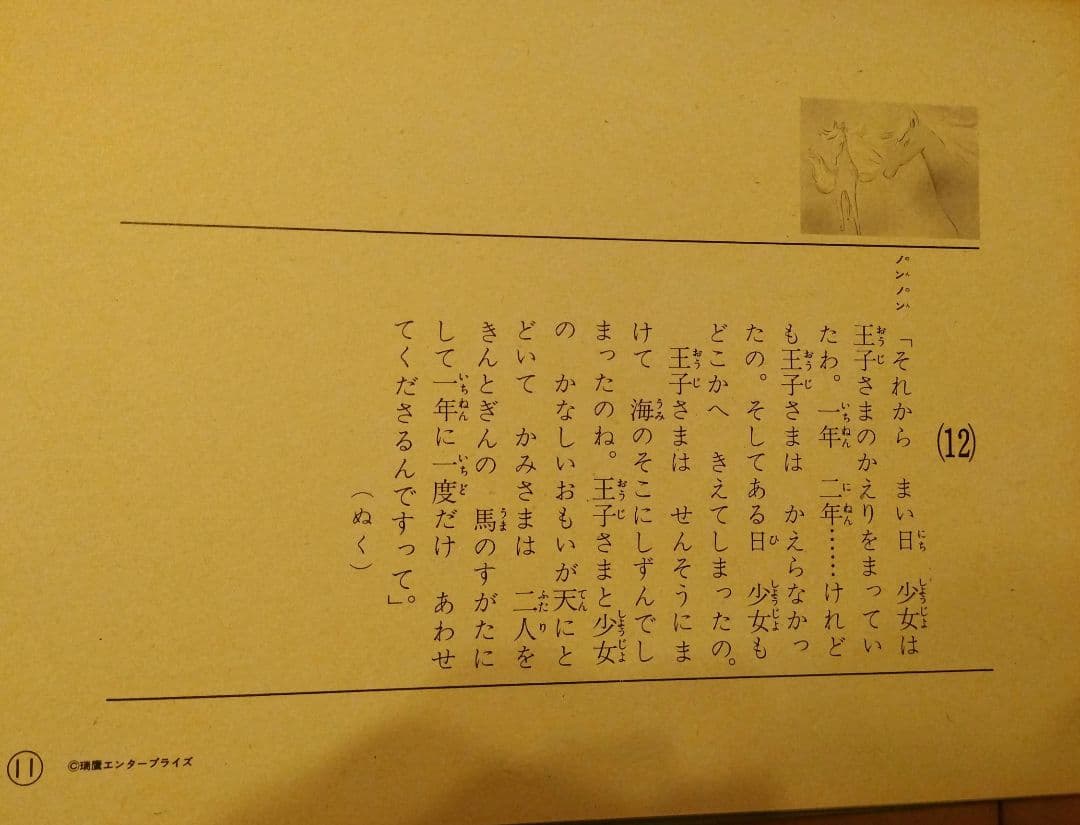 (12)
ノンノン
「それから　まい日　少女は
王子さまのかえりをまってい
たわ。一年　二年……けれど
も王子さまは　かえらなかっ
たの。そしてある日　少女も
どこかへ　きえてしまったの。
王子さまは　せんそうにま
けて　海のそこにしずんでし
まったのね。王子さまと少女
の　かなしいおもいが天にと
どいて　かみさまは　二人を
きんとぎんの　馬のすがたに
して一年に一度だけ　あわせ
てくださるんですって」。
（ぬく）
11
©瑞鷹エンタープライズ